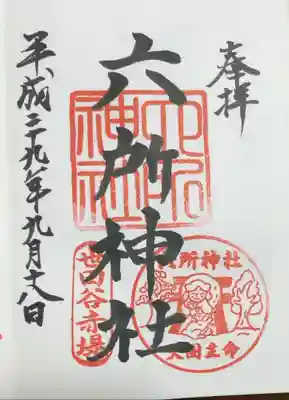 奉拝
六所神社
六所神社
世田谷赤堤
六所神社
大国主命
平成二十九年九月十八日